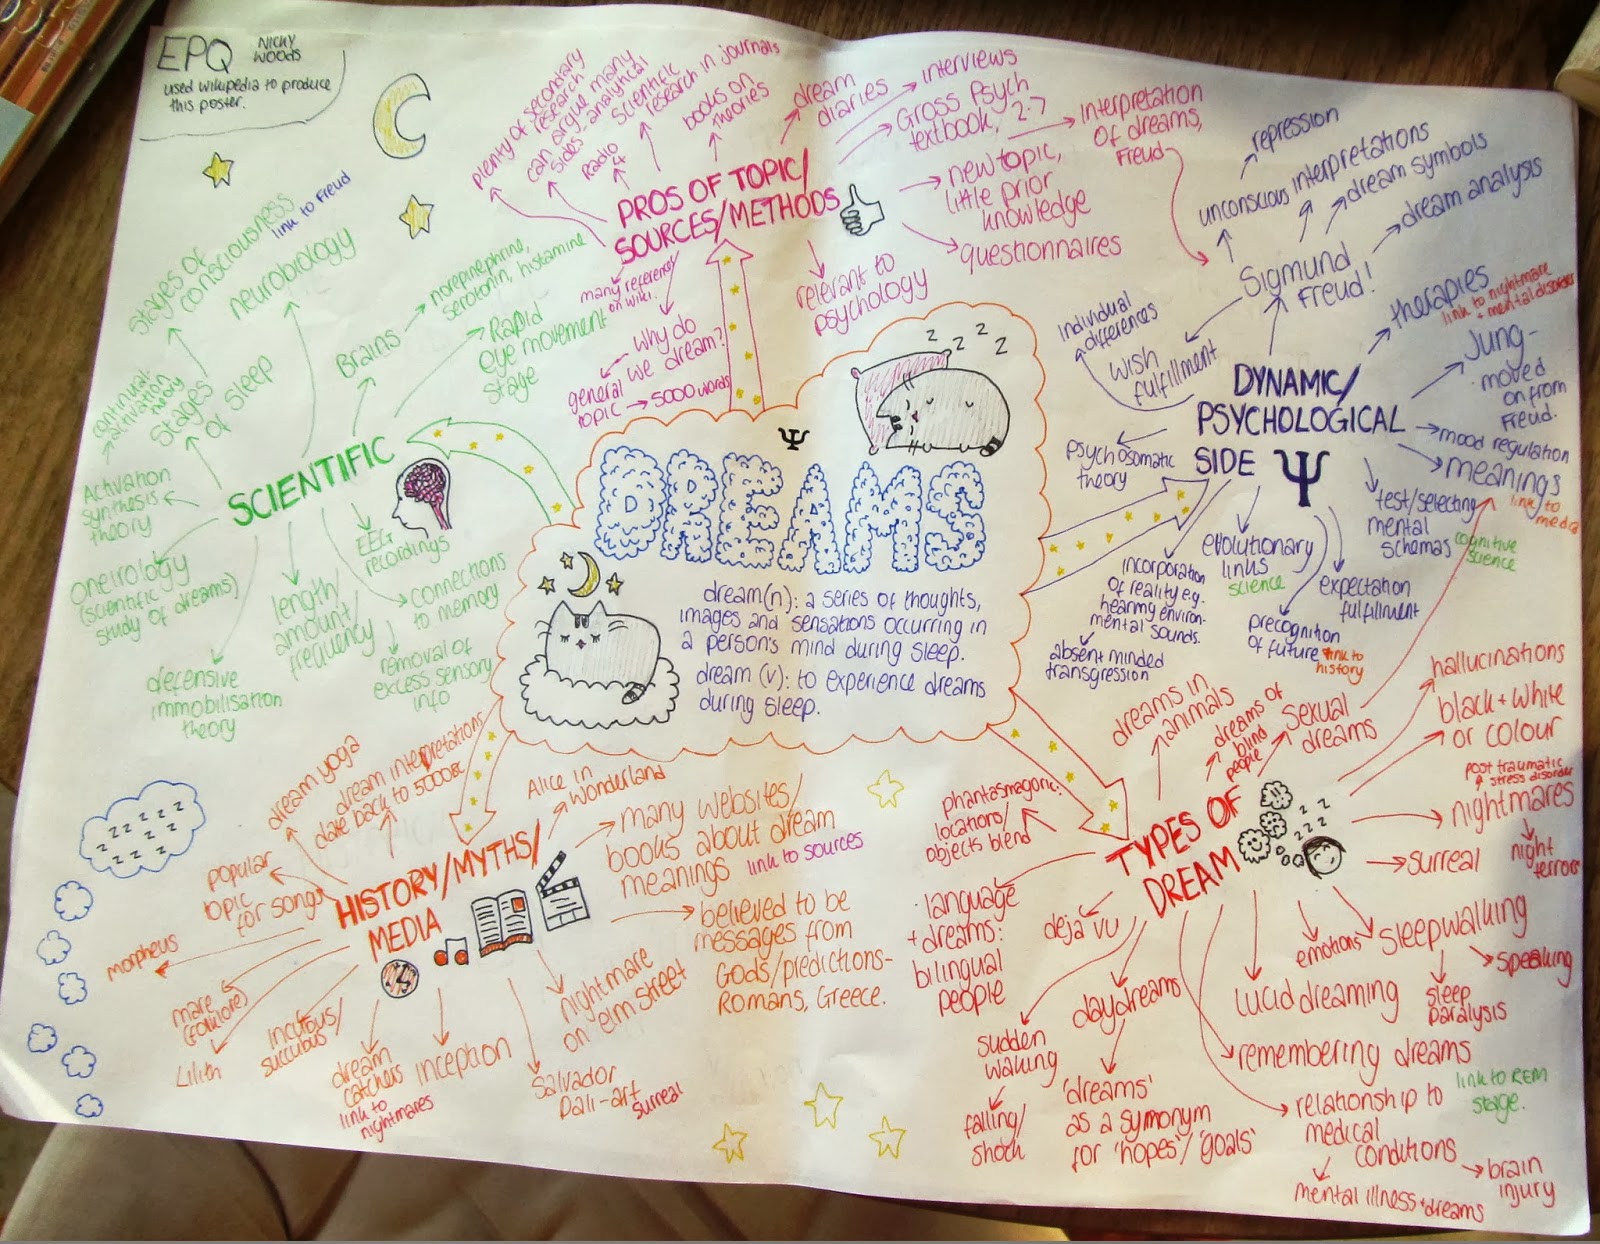 EPQ
NICKY
WOODS
used wikipedia to produce
this poster.
PROS OF TOPIC/
SOURCES/METHODS
plenty of secondary
research
can argue many
sides-analytical
Radio
4
scientific
research in journals
books on
theories
dream
diaries
interviews
Gross Psych
textbook, 2-7
interpretation
of dreams,
Freud
new topic,
little prior
knowledge
questionnaires
relevant to
psychology
many references
on wiki.
why do
we dream?
general
topic → 5000 words
SCIENTIFIC
Stages of
consciousness
link to Freud
neurobiology
continual-
activation
theory
Stages
of sleep
Brains
norepinephrine,
serotonin, histamine
Rapid
eye movement
stage
Activation
synthesis
theory
oneirology
(scientific
study of dreams)
defensive
immobilisation
theory
length/
amount/
frequency
EEG
recordings
connections
to memory
removal of
excess sensory
info
DREAMS
Ψ
z z z z
dream(n): a series of thoughts,
images and sensations occurring in
a person's mind during sleep.
dream (v): to experience dreams
during sleep.
DYNAMIC/
PSYCHOLOGICAL
SIDE Ψ
Sigmund
Freud!
repression
unconscious
interpretations
dream symbols
dream analysis
wish
fulfillment
individual
differences
therapies
link to nightmare
+ mental disorders
Jung-
moved
on from
Freud.
mood regulation
meanings
link to
media
psychosomatic
theory
test/selecting
mental
schemas
cognitive
science
evolutionary
links
science
expectation
fulfillment
precognition
of future
link to
history
incorporation
of reality e.g.
hearing environ-
mental sounds.
absent minded
transgression
HISTORY/MYTHS/
MEDIA
dream yoga
dream interpretations
date back to 5000BC
Alice in
Wonderland
many websites/
books about dream
meanings
link to sources
believed to be
messages from
Gods/predictions-
Romans, Greece.
popular
topic
for songs
morpheus
mare
(folklore)
Lilith
incubus/
succubus
dream
catchers
link to
nightmares
inception
Salvador
Dali-art
surreal
nightmare
on elm street
z z z z
z z z z
z z z z
TYPES OF
DREAM
dreams in
animals
dreams of
blind
people
sexual
dreams
hallucinations
black + white
or colour
post traumatic
stress disorder
nightmares
night
terrors
surreal
sleepwalking
speaking
sleep
paralysis
emotions
lucid dreaming
remembering dreams
link to REM
stage.
relationship to
medical
conditions
brain
injury
mental illness + dreams
phantasmagoric:
locations/
objects blend
language
+ dreams:
bilingual
people
deja vu
daydreams
'dreams'
as a symonym
for 'hopes'/'goals'
sudden
waking
falling/
shock
z z
z z z